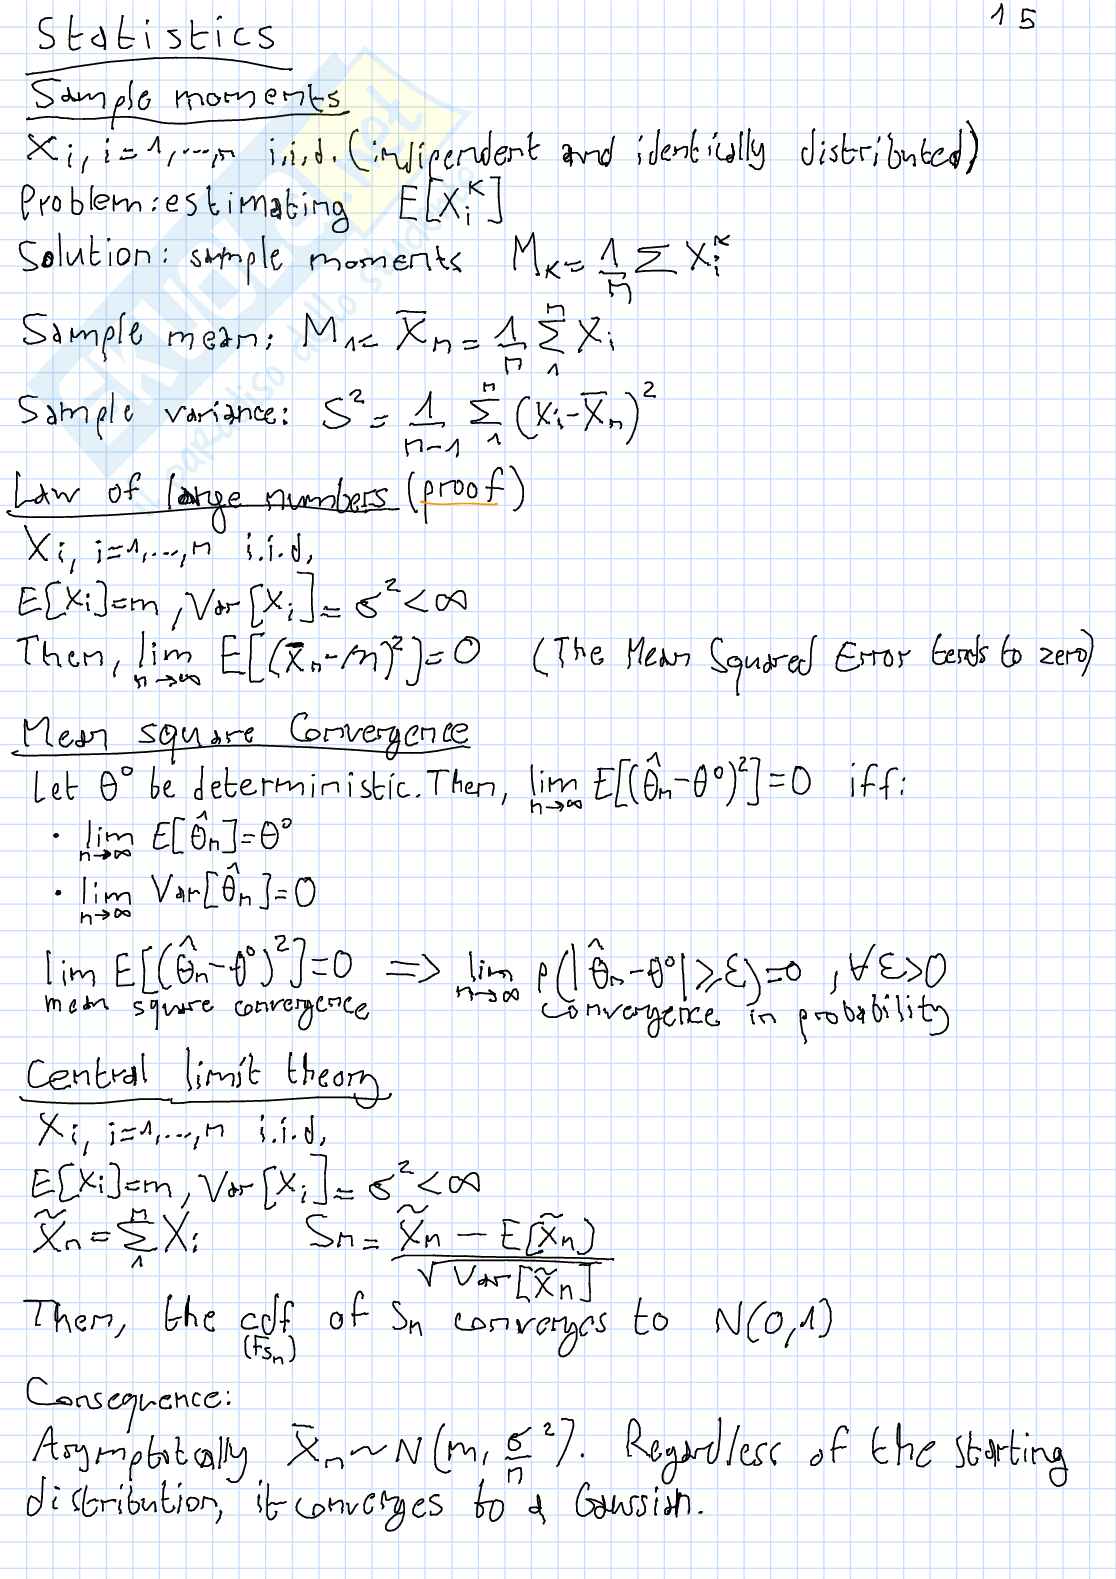 15
Statistics
Sample moments
Xi, i=1,...,n i.i.d. (indipendent and identically distributed)
Problem: estimating E[Xi^K]
Solution: sample moments M_K = 1/n Σ Xi^K
Sample mean: M_1 = X̄n = 1/n Σ_1^n Xi
Sample variance: S² = 1/(n-1) Σ_1^n (Xi - X̄n)²
Law of large numbers (proof)
Xi, i=1,...,n i.i.d,
E[Xi]=m, Var[Xi]=σ²<∞
Then, lim n→∞ E[(X̄n-m)²]=0 (The Mean Squared Error tends to zero)
Mean square Convergence
Let θ° be deterministic. Then, lim n→∞ E[(θ̂n-θ°)²]=0 iff:
• lim n→∞ E[θ̂n]=θ°
• lim n→∞ Var[θ̂n]=0
lim E[(θ̂n-θ°)²]=0 => lim n→∞ P(|θ̂n-θ°|≥ε)=0, ∀ε>0
mean square convergence convergence in probability
Central limit theory
Xi, i=1,...,n i.i.d,
E[Xi]=m, Var[Xi]=σ²<∞
X̃n = Σ_1^n Xi Sn = (X̃n - E[X̃n])/√Var[X̃n]
Then, the cdf of Sn converges to N(0,1)
(Fsn)
Consequence:
Asymptotically X̄n ~ N(m, σ²/n). Regardless of the starting
distribution, it converges to a Gaussian.